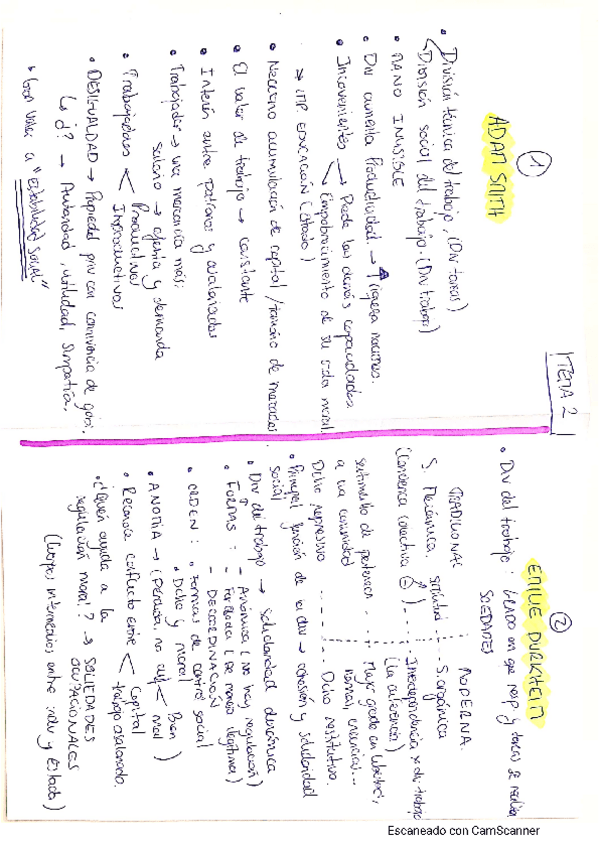 TEMA 2
①
ADAM SMITH
• División técnica del trabajo. (Div tareas)
División social del trabajo. (Div trabajo)
• MANO INVISIBLE
• Div aumenta Productividad. → ↑ riqueza naciones.
• Inconvenientes → Pierde las demás capacidades
Empobrecimiento de su vida moral.
→ IMP EDUCACIÓN (Estado)
• Necesario acumulación de capital / tamaño de mercados
• El valor de trabajo → constante
• Interés entre patronos y asalariados
• Trabajador → una mercancía más:
salario → oferta y demanda
• Trabajadores < Productivos
Improductivos
• DESIGUALDAD → Propiedad priv con connivencia de gob.
↳ ¿? → Antigüedad, utilidad, simpatía,
• Gran valor a "Estabilidad social"
②
EMILE DURKHEIM
• Div del trabajo: Modo en que resp y tareas se
SOCIEDADES
TRADICIONAL MODERNA
S. Mecánica S. orgánica
(Conciencia colectiva Interdependencia x div trabajo
(la diferencia)
sentimiento de pertenencia Mayor grado en libertades,
a una comunidad normas, creencias...
Dcho represivo Dcho restitutivo.
• Principal función de la div → cohesión y solidaridad
social
• Div de trabajo → solidaridad orgánica
• FORMAS: - Anómica (no hay regulación)
- Forzada (de manera ilegítima)
- DESCOORDINACIÓN
• ORDEN: • Formas de control social
• Dcho y moral
• ANOMIA → (Pérdida no < Bien
mal )
• Reconoce conflicto entre < Capital
trabajo asalariado.
• ¿Quién ayuda a la
regulación moral? → SOCIEDADES
OCUPACIONALES
(Cuerpos intermedios entre indiv y Estado)
Escaneado con CamScanner